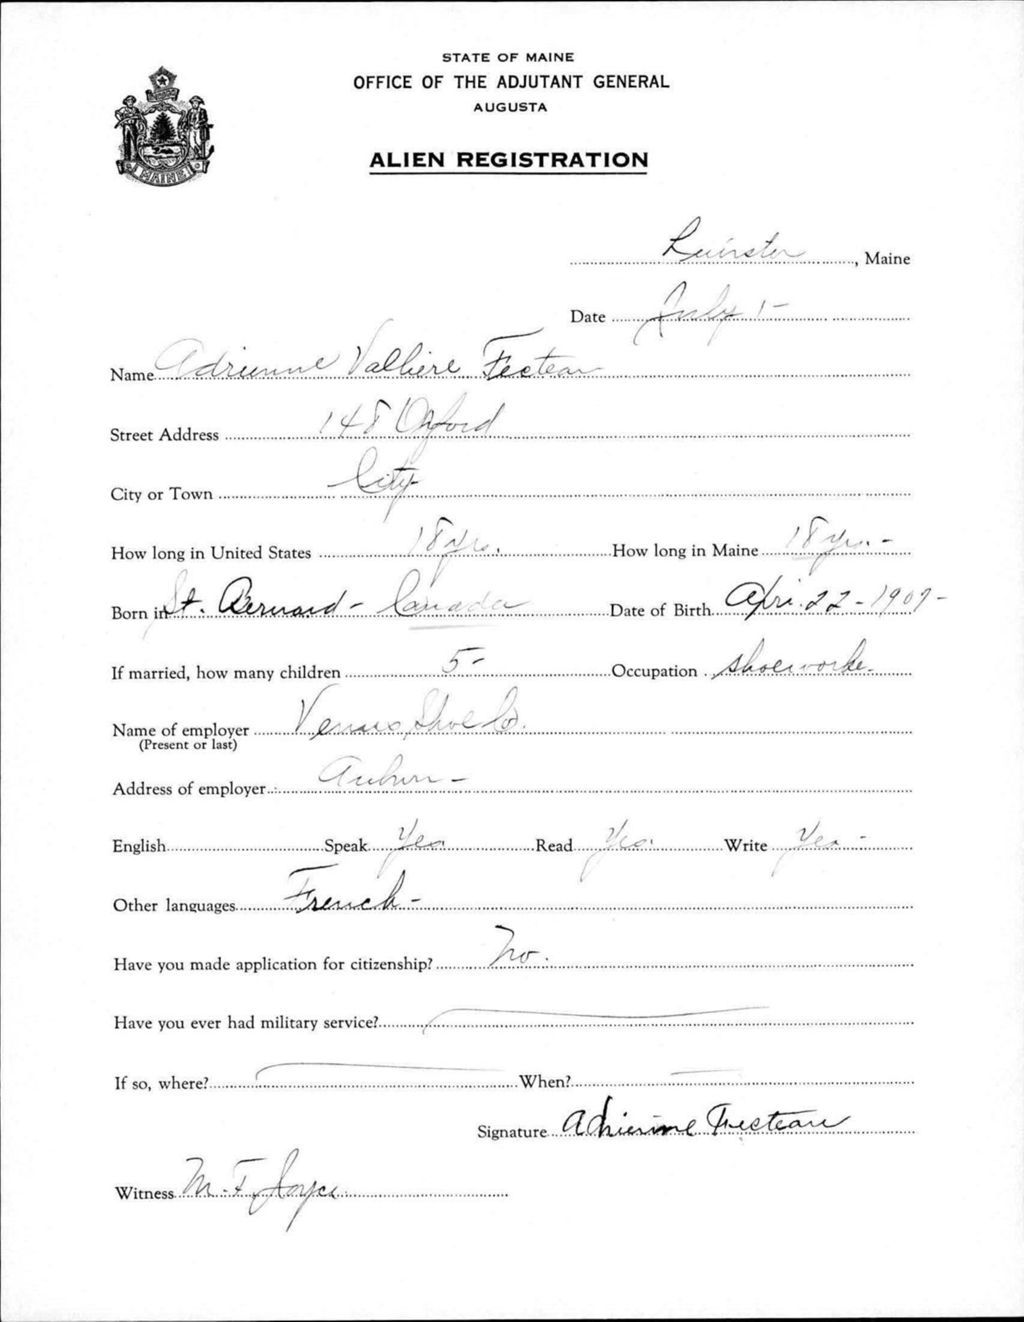 STATE OF MAINE
OFFICE OF THE ADJUTANT GENERAL
AUGUSTA
MAINE
ALIEN REGISTRATION
, Maine
Date July 1-
Name Adrienne Valliere Fecteau
Street Address 148 Oxford
City or Town City-
How long in United States 18 yrs. How long in Maine 18 yrs. -
Born in St. Bernard - Canada Date of Birth Apri. 22 - 1907-
If married, how many children 5- Occupation Shoeworke
Name of employer Venus Shoe Co.
(Present or last)
Address of employer Auburn -
English Speak Yes Read Yes Write Yes -
Other languages French -
Have you made application for citizenship? No.
Have you ever had military service?
If so, where? When?
Signature Adrienne Fecteau
Witness M. F. Joyce